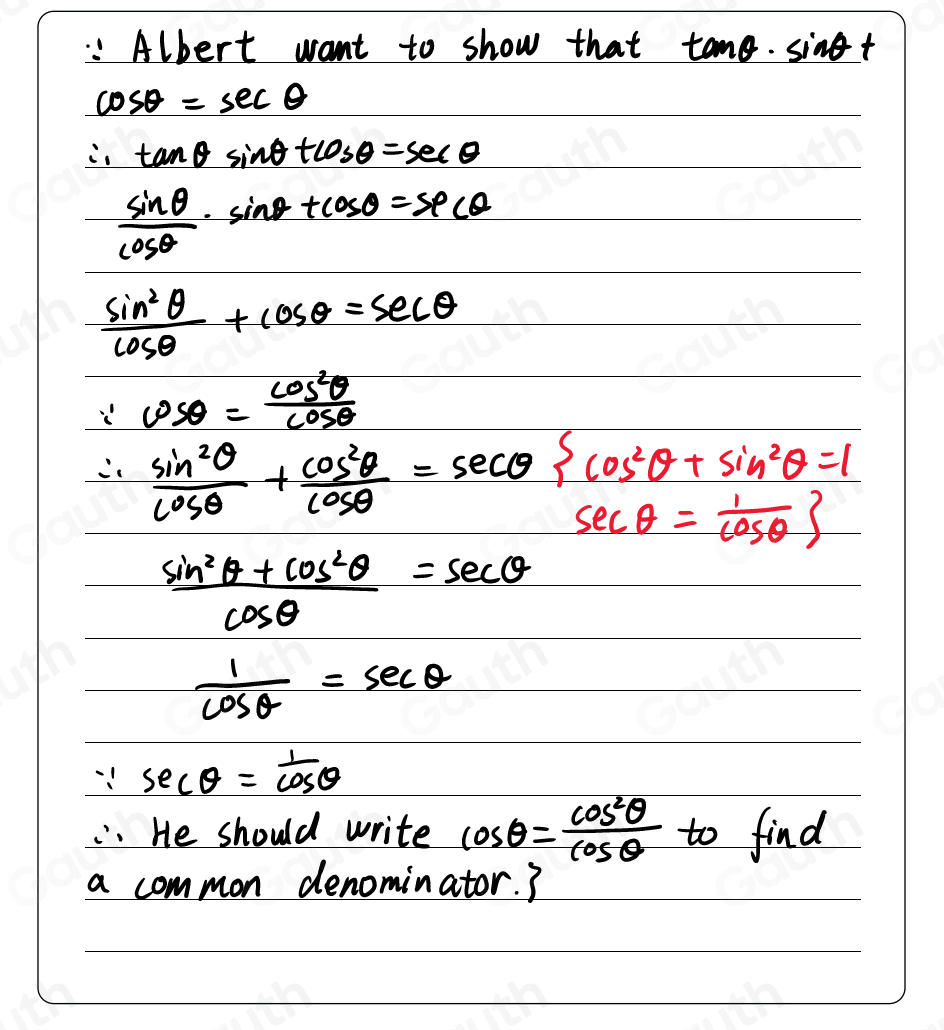 ∵ Albert want to show that tanθ · sinθ +
cosθ = sec θ
∴ tan θ sinθ + cosθ = sec θ
sinθ/cosθ · sinθ + cosθ = secθ
sin²θ/cosθ + cosθ = secθ
∵ cosθ = cos²θ/cosθ
∴ sin²θ/cosθ + cos²θ/cosθ = secθ {cos²θ + sin²θ = 1
sec θ = 1/cosθ}
sin²θ + cos²θ/cosθ = secθ
1/cosθ = secθ
∵ secθ = 1/cosθ
∴ He should write cosθ = cos²θ/cosθ to find
a common denominator.}
Gauth